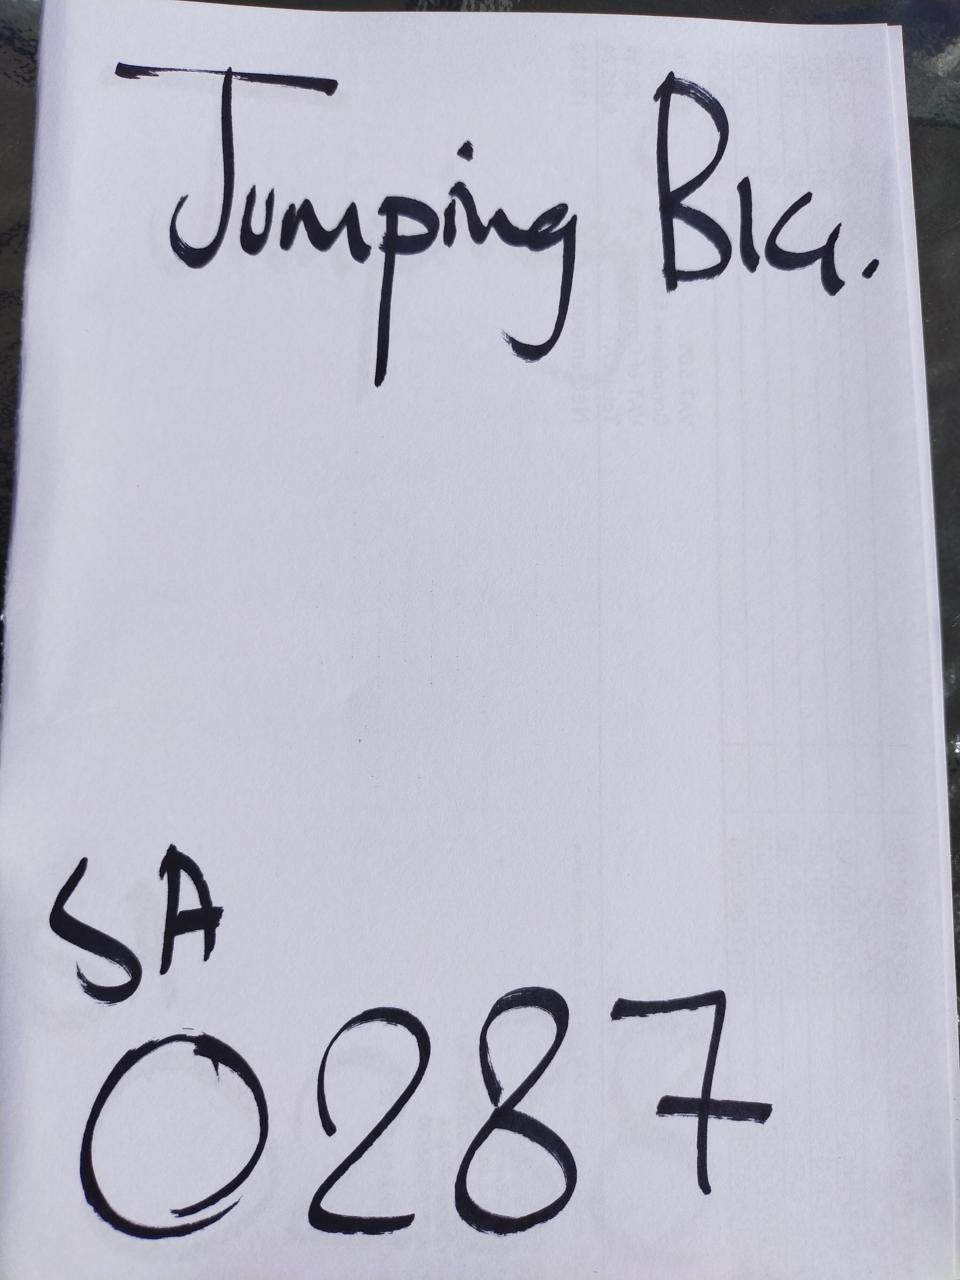 Jumping Big.
SA
0287